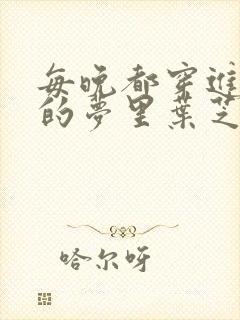 每晚都穿进
的梦里叶芝
哈尔呀